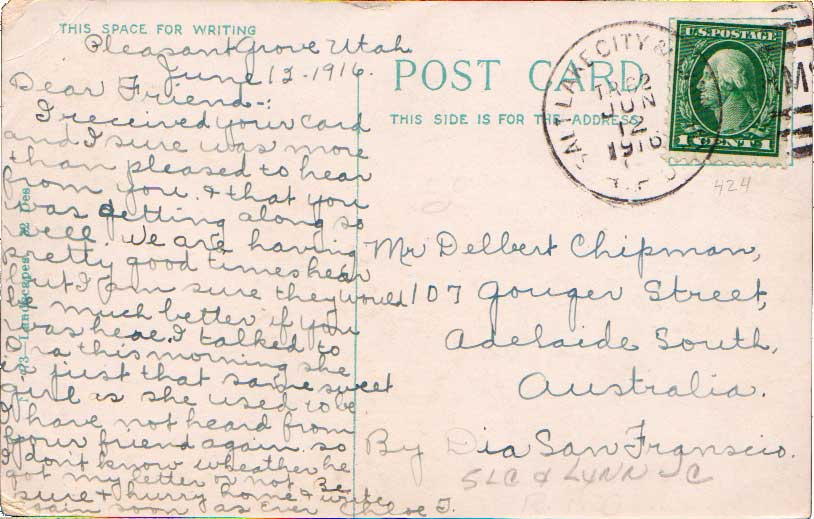 THIS SPACE FOR WRITING
Pleasant Grove Utah
June 12 - 1916.
Dear Friend -:
I received your card
and I sure was more
than pleased to hear
from you. & that you
was getting along so
well. We are having
pretty good times hear
but I am sure they would
be much better if you
was heae. I talked to
Ora this morning she
is just that same sweet
girl as she used to be
I have not heard from
your friend again. so
I don't know wheather he
got my letter or not. Be
sure & hurry home & write
again soon as ever Chloe T.
93 - Landscapes, 32 Des
POST CARD
THIS SIDE IS FOR THE ADDRESS
SALT LAKE CITY &
JUN
12
1916
R.P.O.
U.S. POSTAGE
1 CENT 1
424
Mr Delbert Chipman,
107 Gouger Street,
Adelaide South,
Australia.
By Dia San Franscio.
SLC & LYNN JC